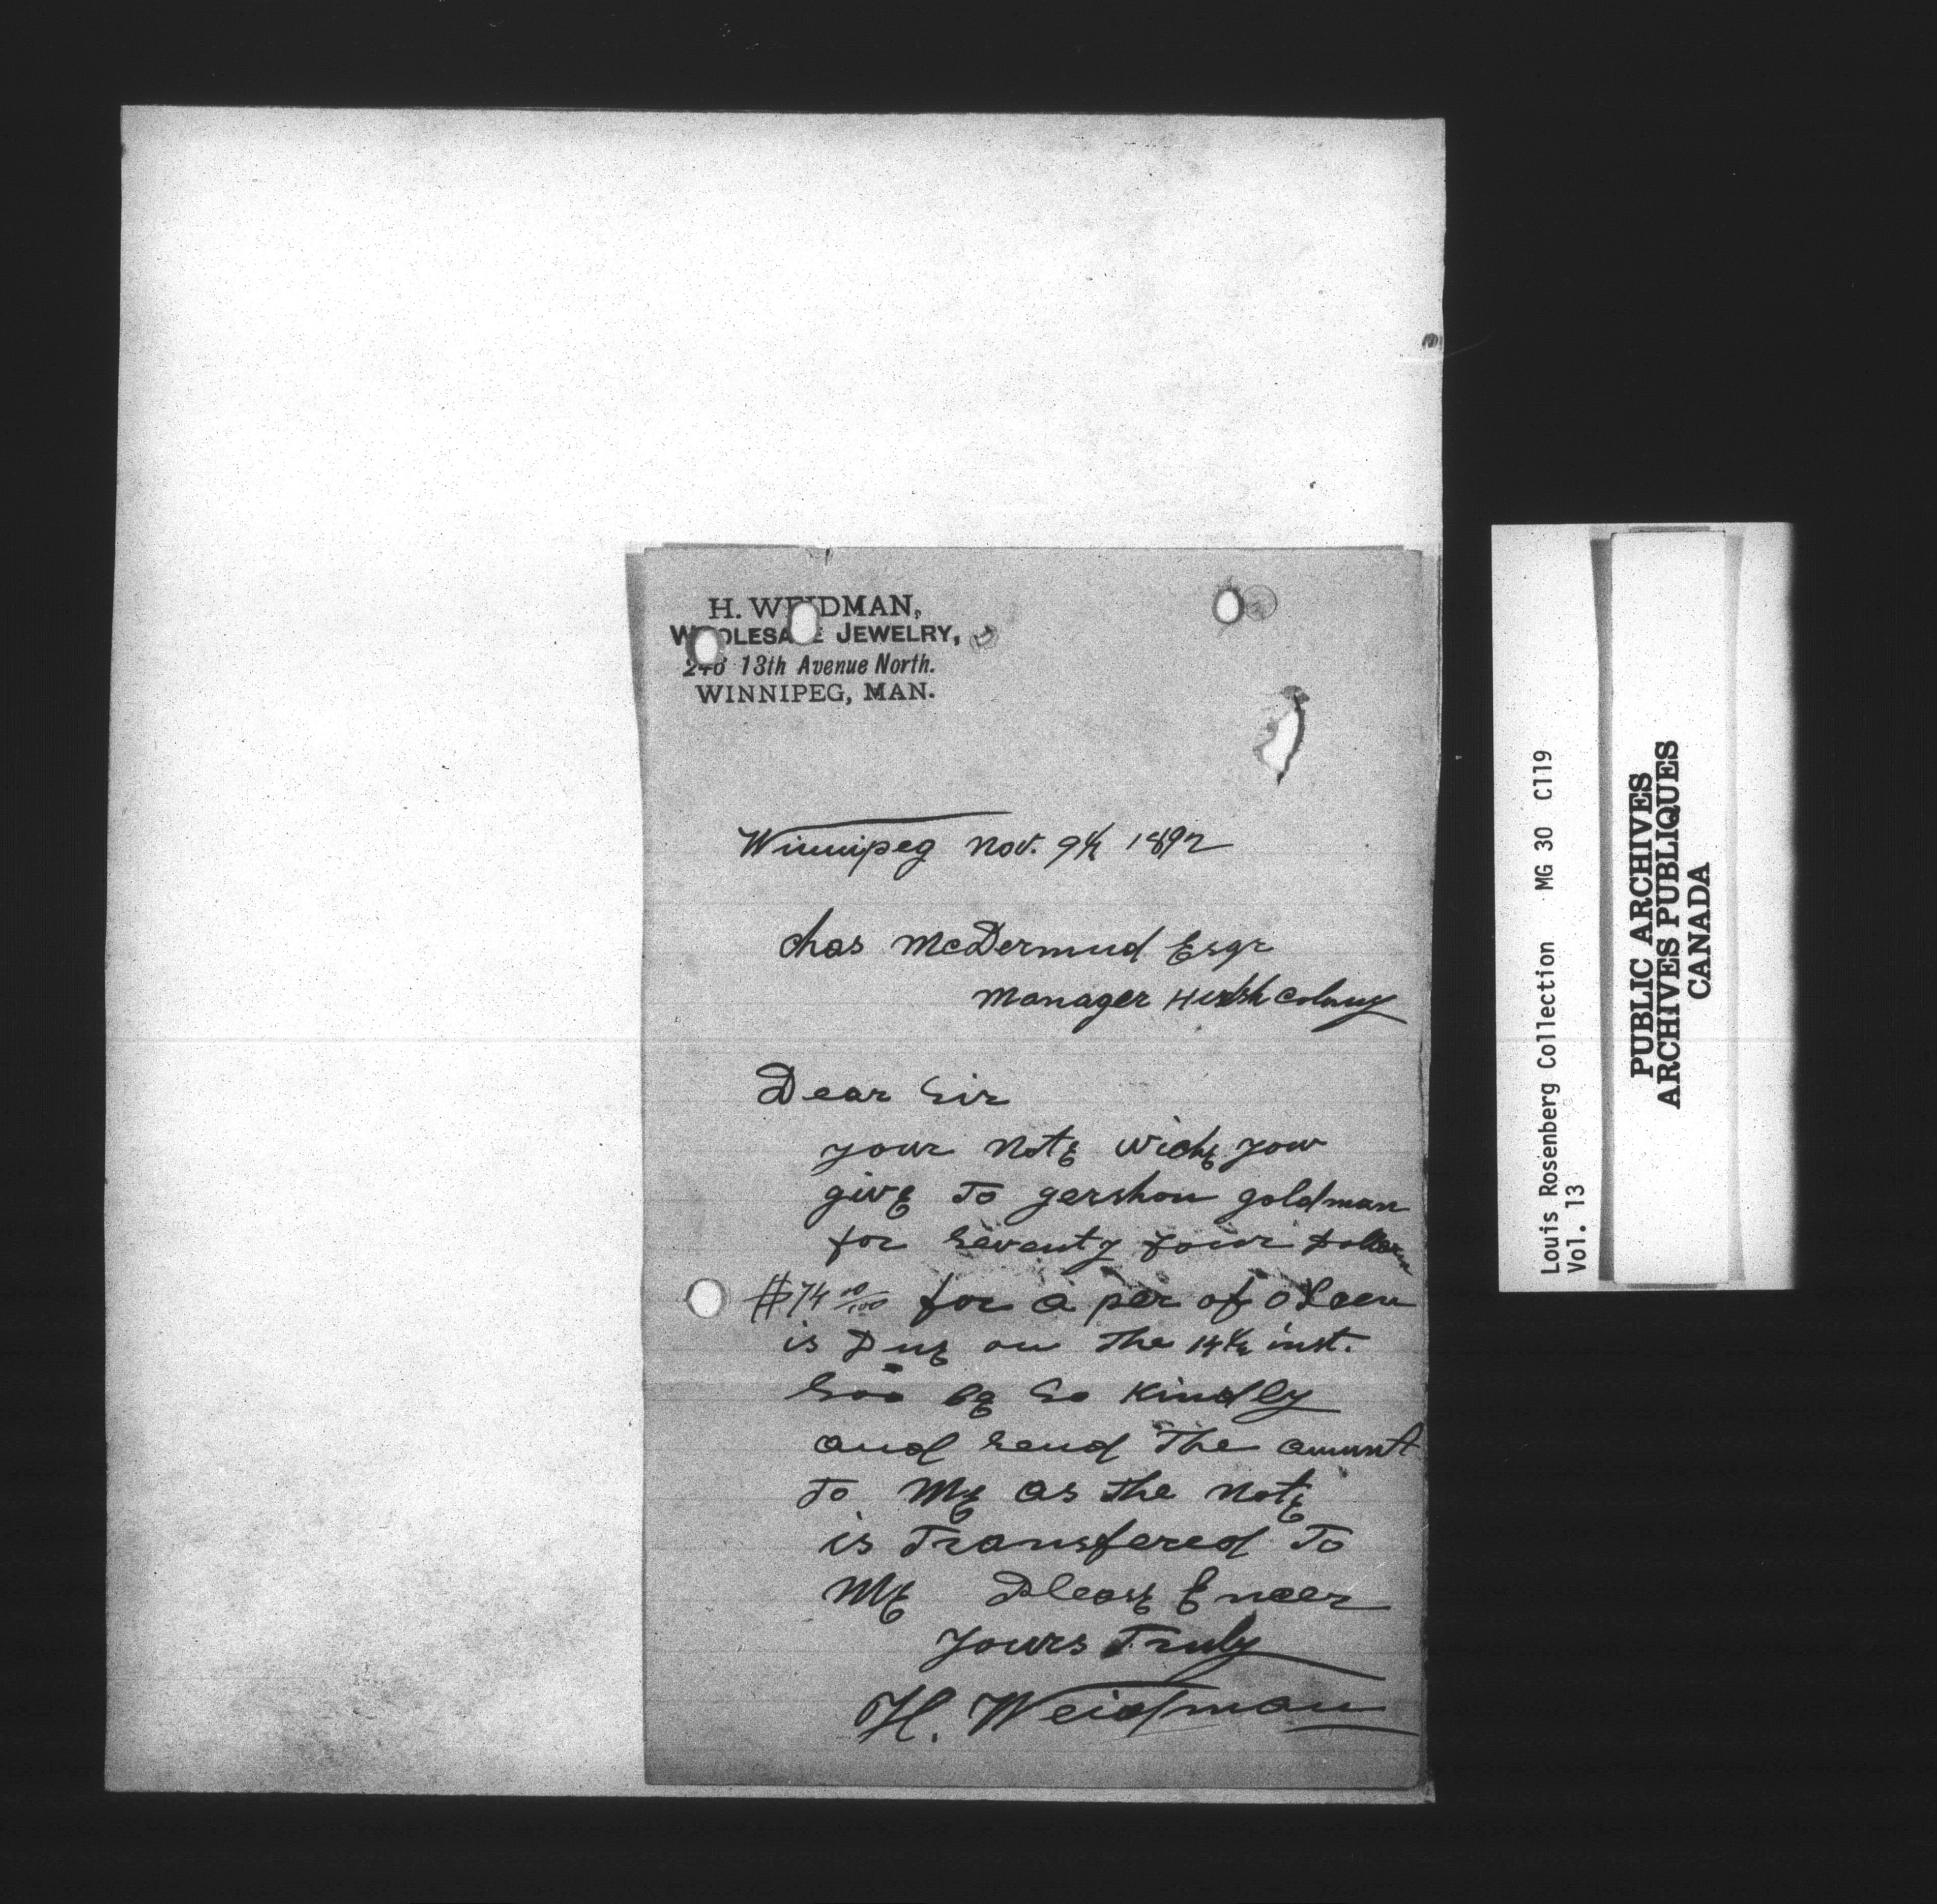 H. WEIDMAN,
WHOLESALE JEWELRY,
246 13th Avenue North.
WINNIPEG, MAN.
Winnipeg Nov. 9th 1892
Chas McDermud Esqr
Manager Hirsh Colony
Dear Sir
your Note wich you
give to gershon goldman
for Seventy four dollars
$74 00/100 for a per of oxen
is Due on the 14th inst.
Soo be So Kindly
and Send The amunt
To Me as the Note
is Transfered To
Me Please
Yours Truly
H. Weidman
Louis Rosenberg Collection MG 30 C119
Vol. 13
PUBLIC ARCHIVES
ARCHIVES PUBLIQUES
CANADA